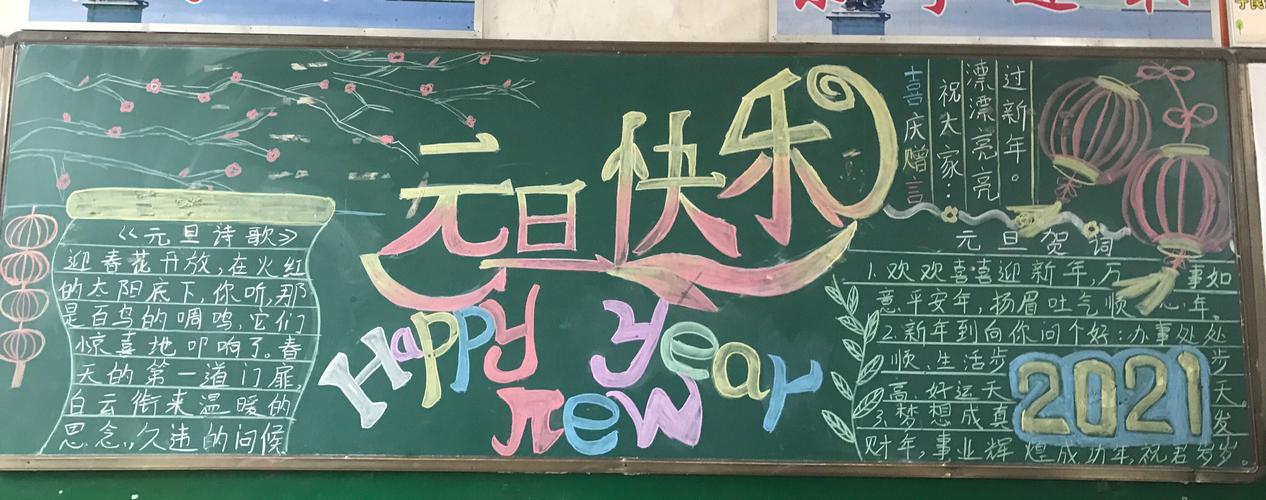 元旦快乐
Happy
new
year
《元旦诗歌》
迎春花开放,在火红
的太阳底下,你听,那
是百鸟的啁鸣,它们
惊喜地叩响了春
天的第一道门扉,
白云衔来温暖的
思念,,久违的问候
喜庆赠言
祝大家:
漂漂亮亮
过新年。
元旦贺词
1.欢欢喜喜迎新年,万 事如
意平安年,扬眉吐气顺 年。
2.新年到向你问个好:办事处处
顺、生活步 步
高、好运天 天。
3.梦想成真 发
财年,事业辉煌成功年,祝君岁岁。
2021